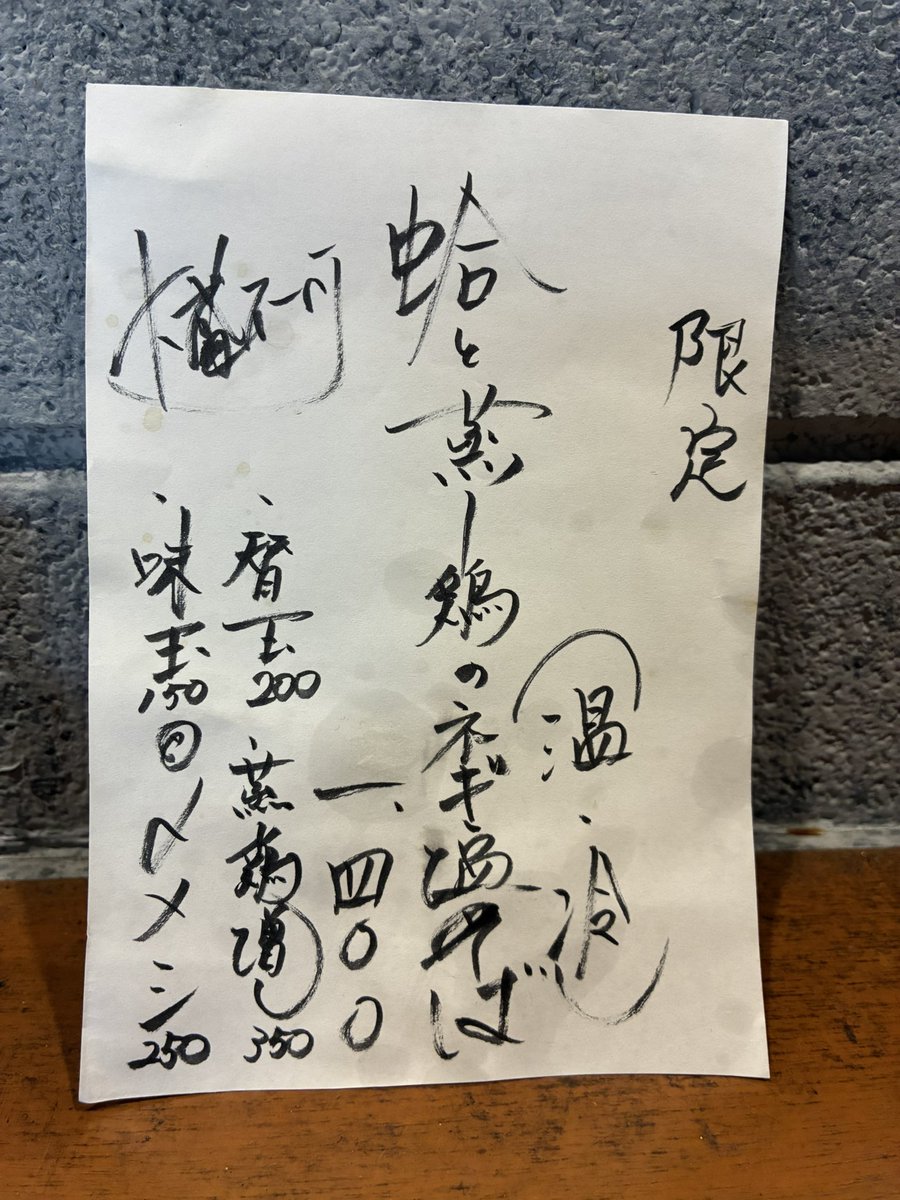 限定
(温・冷)
蛤と蒸し鶏のネギ油そば
一、四〇〇
、暦玉200
、蒸鶏増し350
、味玉150
〆メシ250